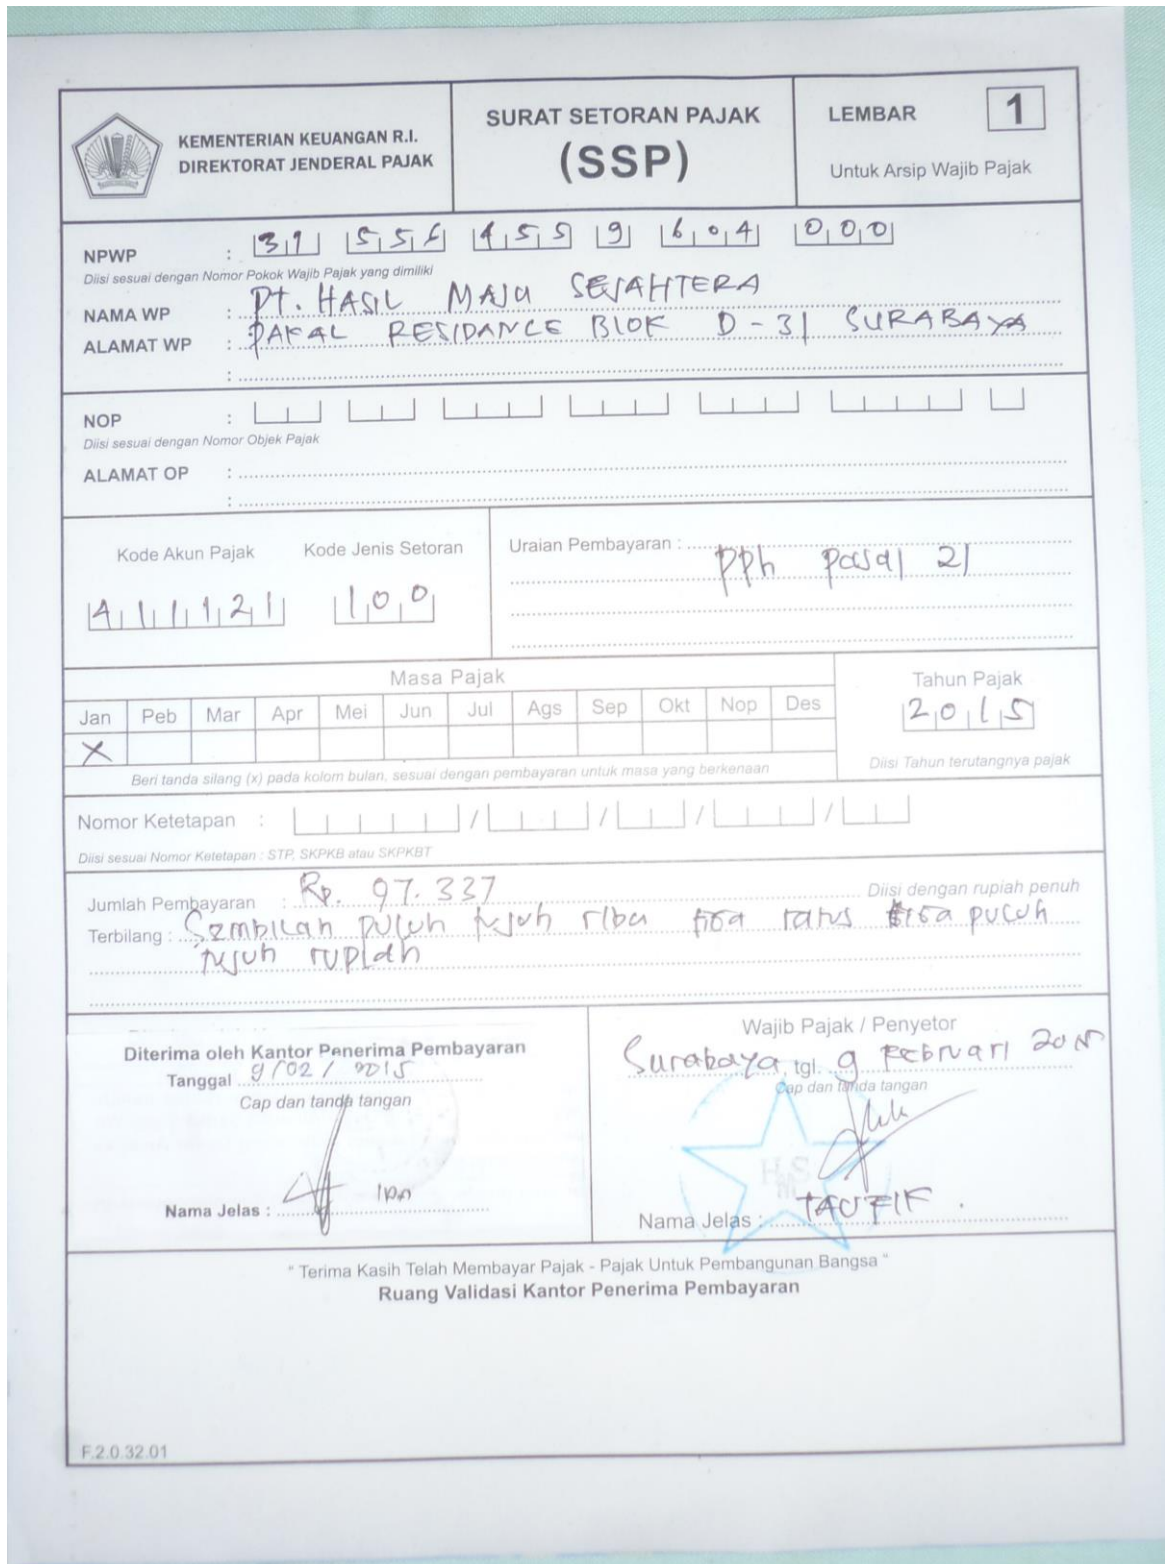 KEMENTERIAN KEUANGAN R.I.
DIREKTORAT JENDERAL PAJAK
SURAT SETORAN PAJAK
(SSP)
LEMBAR 1
Untuk Arsip Wajib Pajak
NPWP : 31 556 455 9 604 000
Diisi sesuai dengan Nomor Pokok Wajib Pajak yang dimiliki
NAMA WP : PT. HASIL MAJU SEJAHTERA
ALAMAT WP : PAKAL RESIDANCE BLOK D-31 SURABAYA
:
NOP :
Diisi sesuai dengan Nomor Objek Pajak
ALAMAT OP :
:
Kode Akun Pajak Kode Jenis Setoran
411121 100
Uraian Pembayaran :
pph pasal 21
Masa Pajak
Jan Peb Mar Apr Mei Jun Jul Ags Sep Okt Nop Des
X
Beri tanda silang (x) pada kolom bulan, sesuai dengan pembayaran untuk masa yang berkenaan
Tahun Pajak
2015
Diisi Tahun terutangnya pajak
Nomor Ketetapan : / / / /
Diisi sesuai Nomor Ketetapan : STP, SKPKB atau SKPKBT
Jumlah Pembayaran : Rp. 97.337 Diisi dengan rupiah penuh
Terbilang : Sembilan puluh tujuh ribu tiga ratus tiga puluh
tujuh rupiah
Diterima oleh Kantor Penerima Pembayaran
Tanggal 9/02/2015
Cap dan tanda tangan
Nama Jelas :
Wajib Pajak / Penyetor
Surabaya, tgl. 9 Februari 2015
Cap dan tanda tangan
HMS
Nama Jelas : TAUFIK.
" Terima Kasih Telah Membayar Pajak - Pajak Untuk Pembangunan Bangsa "
Ruang Validasi Kantor Penerima Pembayaran
F.2.0.32.01